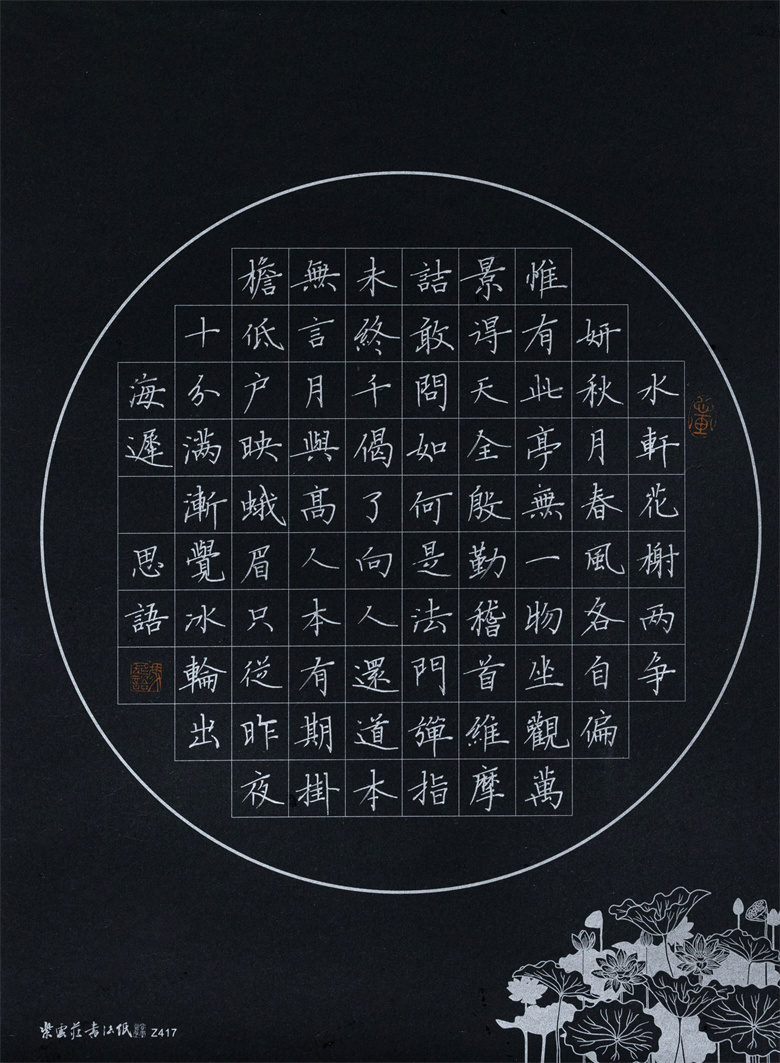 水軒花榭两争
妍秋月春風各自偏
惟有此亭無一物坐觀萬
景得天全殷勤稽首維摩
詰敢問如何是法門彈指
未終千偈了向人還道本
無言月與高人本有期掛
檐低户映蛾眉只從昨夜
十分满漸覺冰輪出
海遲 思語
紫雲莊书法纸 Z417